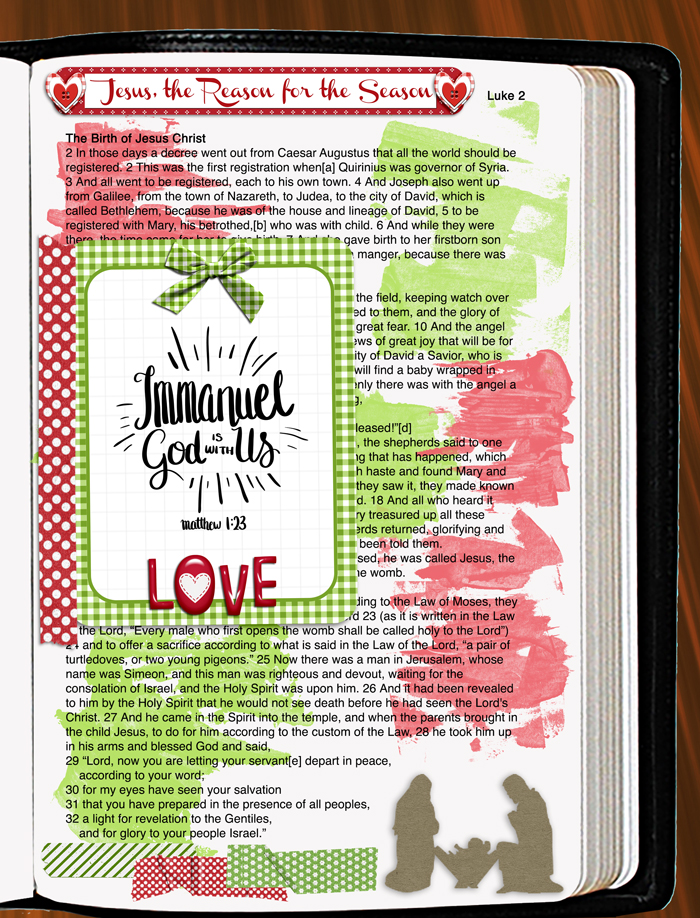 Jesus, the Reason for the Season
Luke 2
The Birth of Jesus Christ
2 In those days a decree went out from Caesar Augustus that all the world should be
registered. 2 This was the first registration when[a] Quirinius was governor of Syria.
3 And all went to be registered, each to his own town. 4 And Joseph also went up
from Galilee, from the town of Nazareth, to Judea, to the city of David, which is
called Bethlehem, because he was of the house and lineage of David, 5 to be
registered with Mary, his betrothed,[b] who was with child. 6 And while they were
there, the time came for her to give birth. 7 And she gave birth to her firstborn son
manger, because there was
the field, keeping watch over
to them, and the glory of
great fear. 10 And the angel
of great joy that will be for
of David a Savior, who is
will find a baby wrapped in
there was with the angel a
[d]
, the shepherds said to one
that has happened, which
haste and found Mary and
they saw it, they made known
18 And all who heard it
treasured up all these
returned, glorifying and
been told them.
he was called Jesus, the
womb.
Immanuel
God is with Us
matthew 1:23
LOVE
to the Law of Moses, they
23 (as it is written in the Law
the Lord, “Every male who first opens the womb shall be called holy to the Lord”)
24 and to offer a sacrifice according to what is said in the Law of the Lord, “a pair of
turtledoves, or two young pigeons.” 25 Now there was a man in Jerusalem, whose
name was Simeon, and this man was righteous and devout, waiting for the
consolation of Israel, and the Holy Spirit was upon him. 26 And it had been revealed
to him by the Holy Spirit that he would not see death before he had seen the Lord’s
Christ. 27 And he came in the Spirit into the temple, and when the parents brought in
the child Jesus, to do for him according to the custom of the Law, 28 he took him up
in his arms and blessed God and said,
29 “Lord, now you are letting your servant[e] depart in peace,
according to your word;
30 for my eyes have seen your salvation
31 that you have prepared in the presence of all peoples,
32 a light for revelation to the Gentiles,
and for glory to your people Israel.”